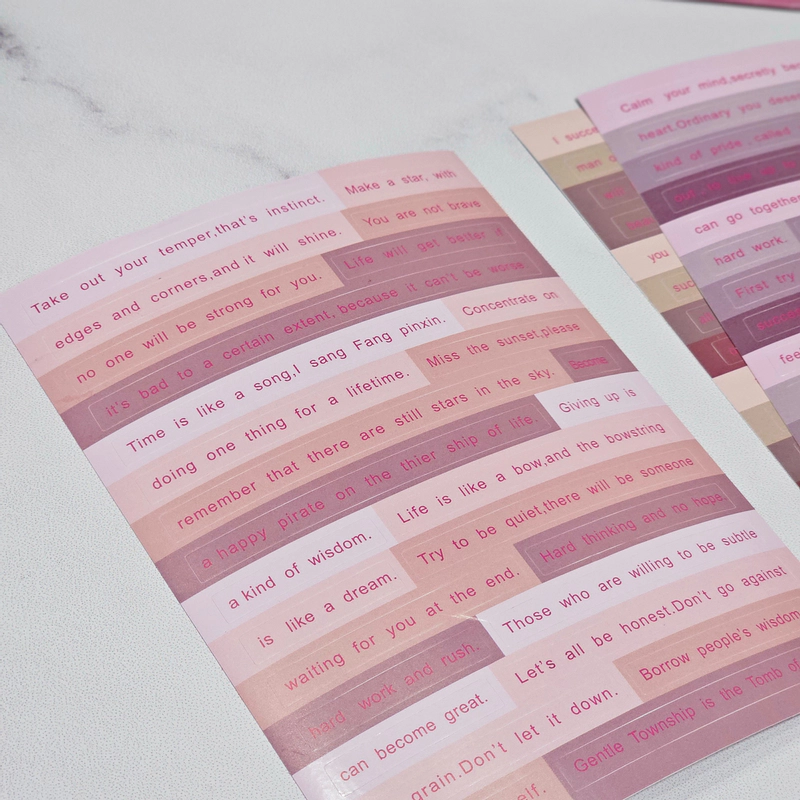 Take out your temper,that's instinct. Make a star, with
edges and corners,and it will shine. You are not brave
no one will be strong for you. Life will get better if
it's bad to a certain extent, because it can't be worse.
Time is like a song,I sang Fang pinxin. Concentrate on
doing one thing for a lifetime. Miss the sunset,please
remember that there are still stars in the sky. Become
a happy pirate on the thier ship of life. Giving up is
a kind of wisdom. Life is like a bow,and the bowstring
is like a dream. Try to be quiet,there will be someone
waiting for you at the end. Hard thinking and no hope
hard work and rush. Those who are willing to be subtle
can become great. Let's all be honest.Don't go against
grain.Don't let it down. Borrow people's wisdom
elf. Gentle Township is the Tomb of
I succe
man o
you
suc
Calm your mind,secretly
heart.Ordinary you
kind of pride , called
can go together
hard work.
First try
feel